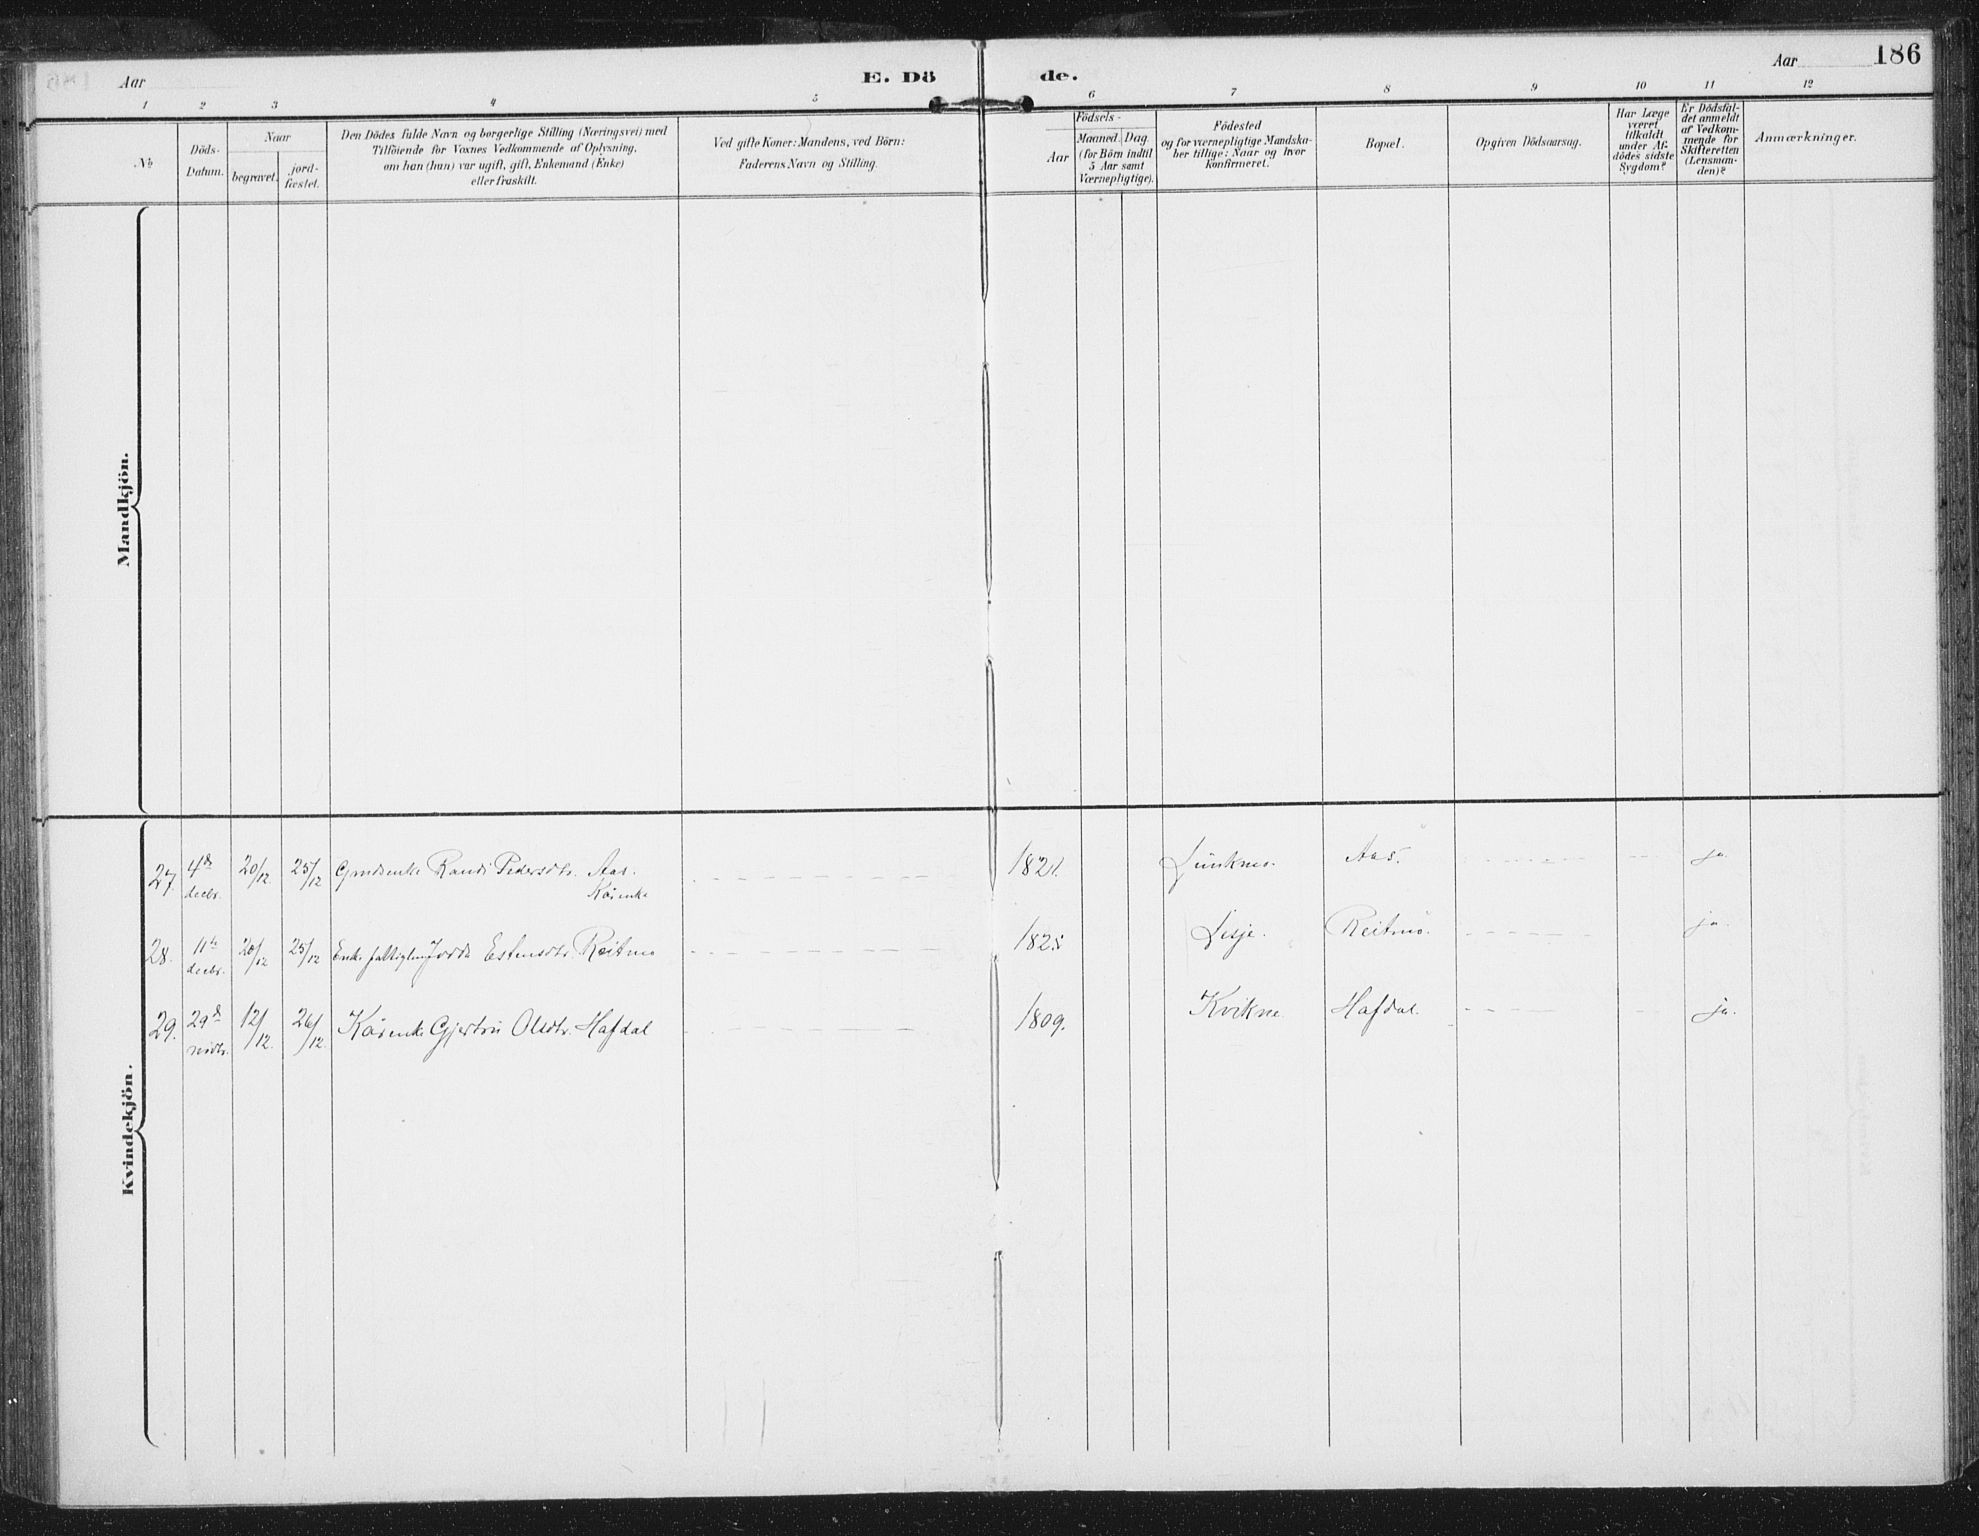 Aar
E. Dö
de.
Aar
186
1 2 3 4 5 6 7 8 9 10 11 12
No
Döds-
Datum.
Naar
begravet.
jord-
fæstet.
Den Dödes fulde Navn og borgerlige Stilling (Næringsvei) med
Tilföiende for Voxnes Vedkommende af Oplysning,
om han (hun) var ugift, gift, Enkemand (Enke)
eller fraskilt.
Ved gifte Koner: Mandens, ved Börn:
Faderens Navn og Stilling.
Födsels-
Aar
Maaned. Dag.
(for Börn indtil
5 Aar samt
Værnepligtige).
Födested
og for værnepligtige Mandska-
ber tillige: Naar og hvor
Konfirmeret.
Bopæl.
Opgiven Dödsaarsag.
Har Læge
været
tilkaldt
under Af-
dödes sidste
Sygdom?
Er Dödsfal-
det anmeldt
af Vedkom-
mende for
Skifteretten
(Lensman-
den)?
Anmærkninger.
Mandkjön.
Kvindekjön.
27. 4de 20/12. 25/12 Randi Pedersdtr. Aas. 1821. Aas. ja.
decbr. Kårenke
28. 11te 20/12 25/12 Enke Estensdtr. Reitmo 1825 Lesje. Reitmo. ja.
decbr.
29. 29de 12/12. 26/12. Kårenke Gjertru Olsdtr. Hafdal 1809. Kvikne. Hafdal. ja.
novbr.